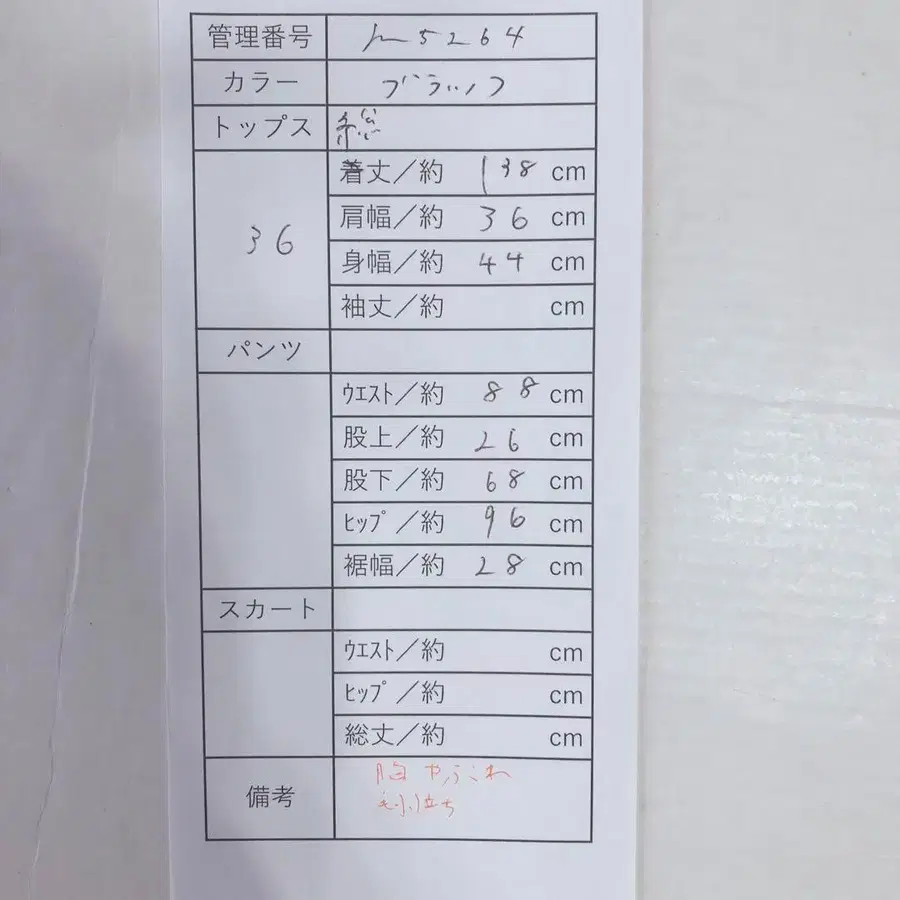 管理番号 m5264
カラー ブラック
トップス 総
36
着丈／約 138 cm
肩幅／約 36 cm
身幅／約 44 cm
袖丈／約 cm
パンツ
ｳｴｽﾄ／約 88 cm
股上／約 26 cm
股下／約 68 cm
ﾋｯﾌﾟ／約 96 cm
裾幅／約 28 cm
スカート
ｳｴｽﾄ／約 cm
ﾋｯﾌﾟ／約 cm
総丈／約 cm
備考
胸
立ち